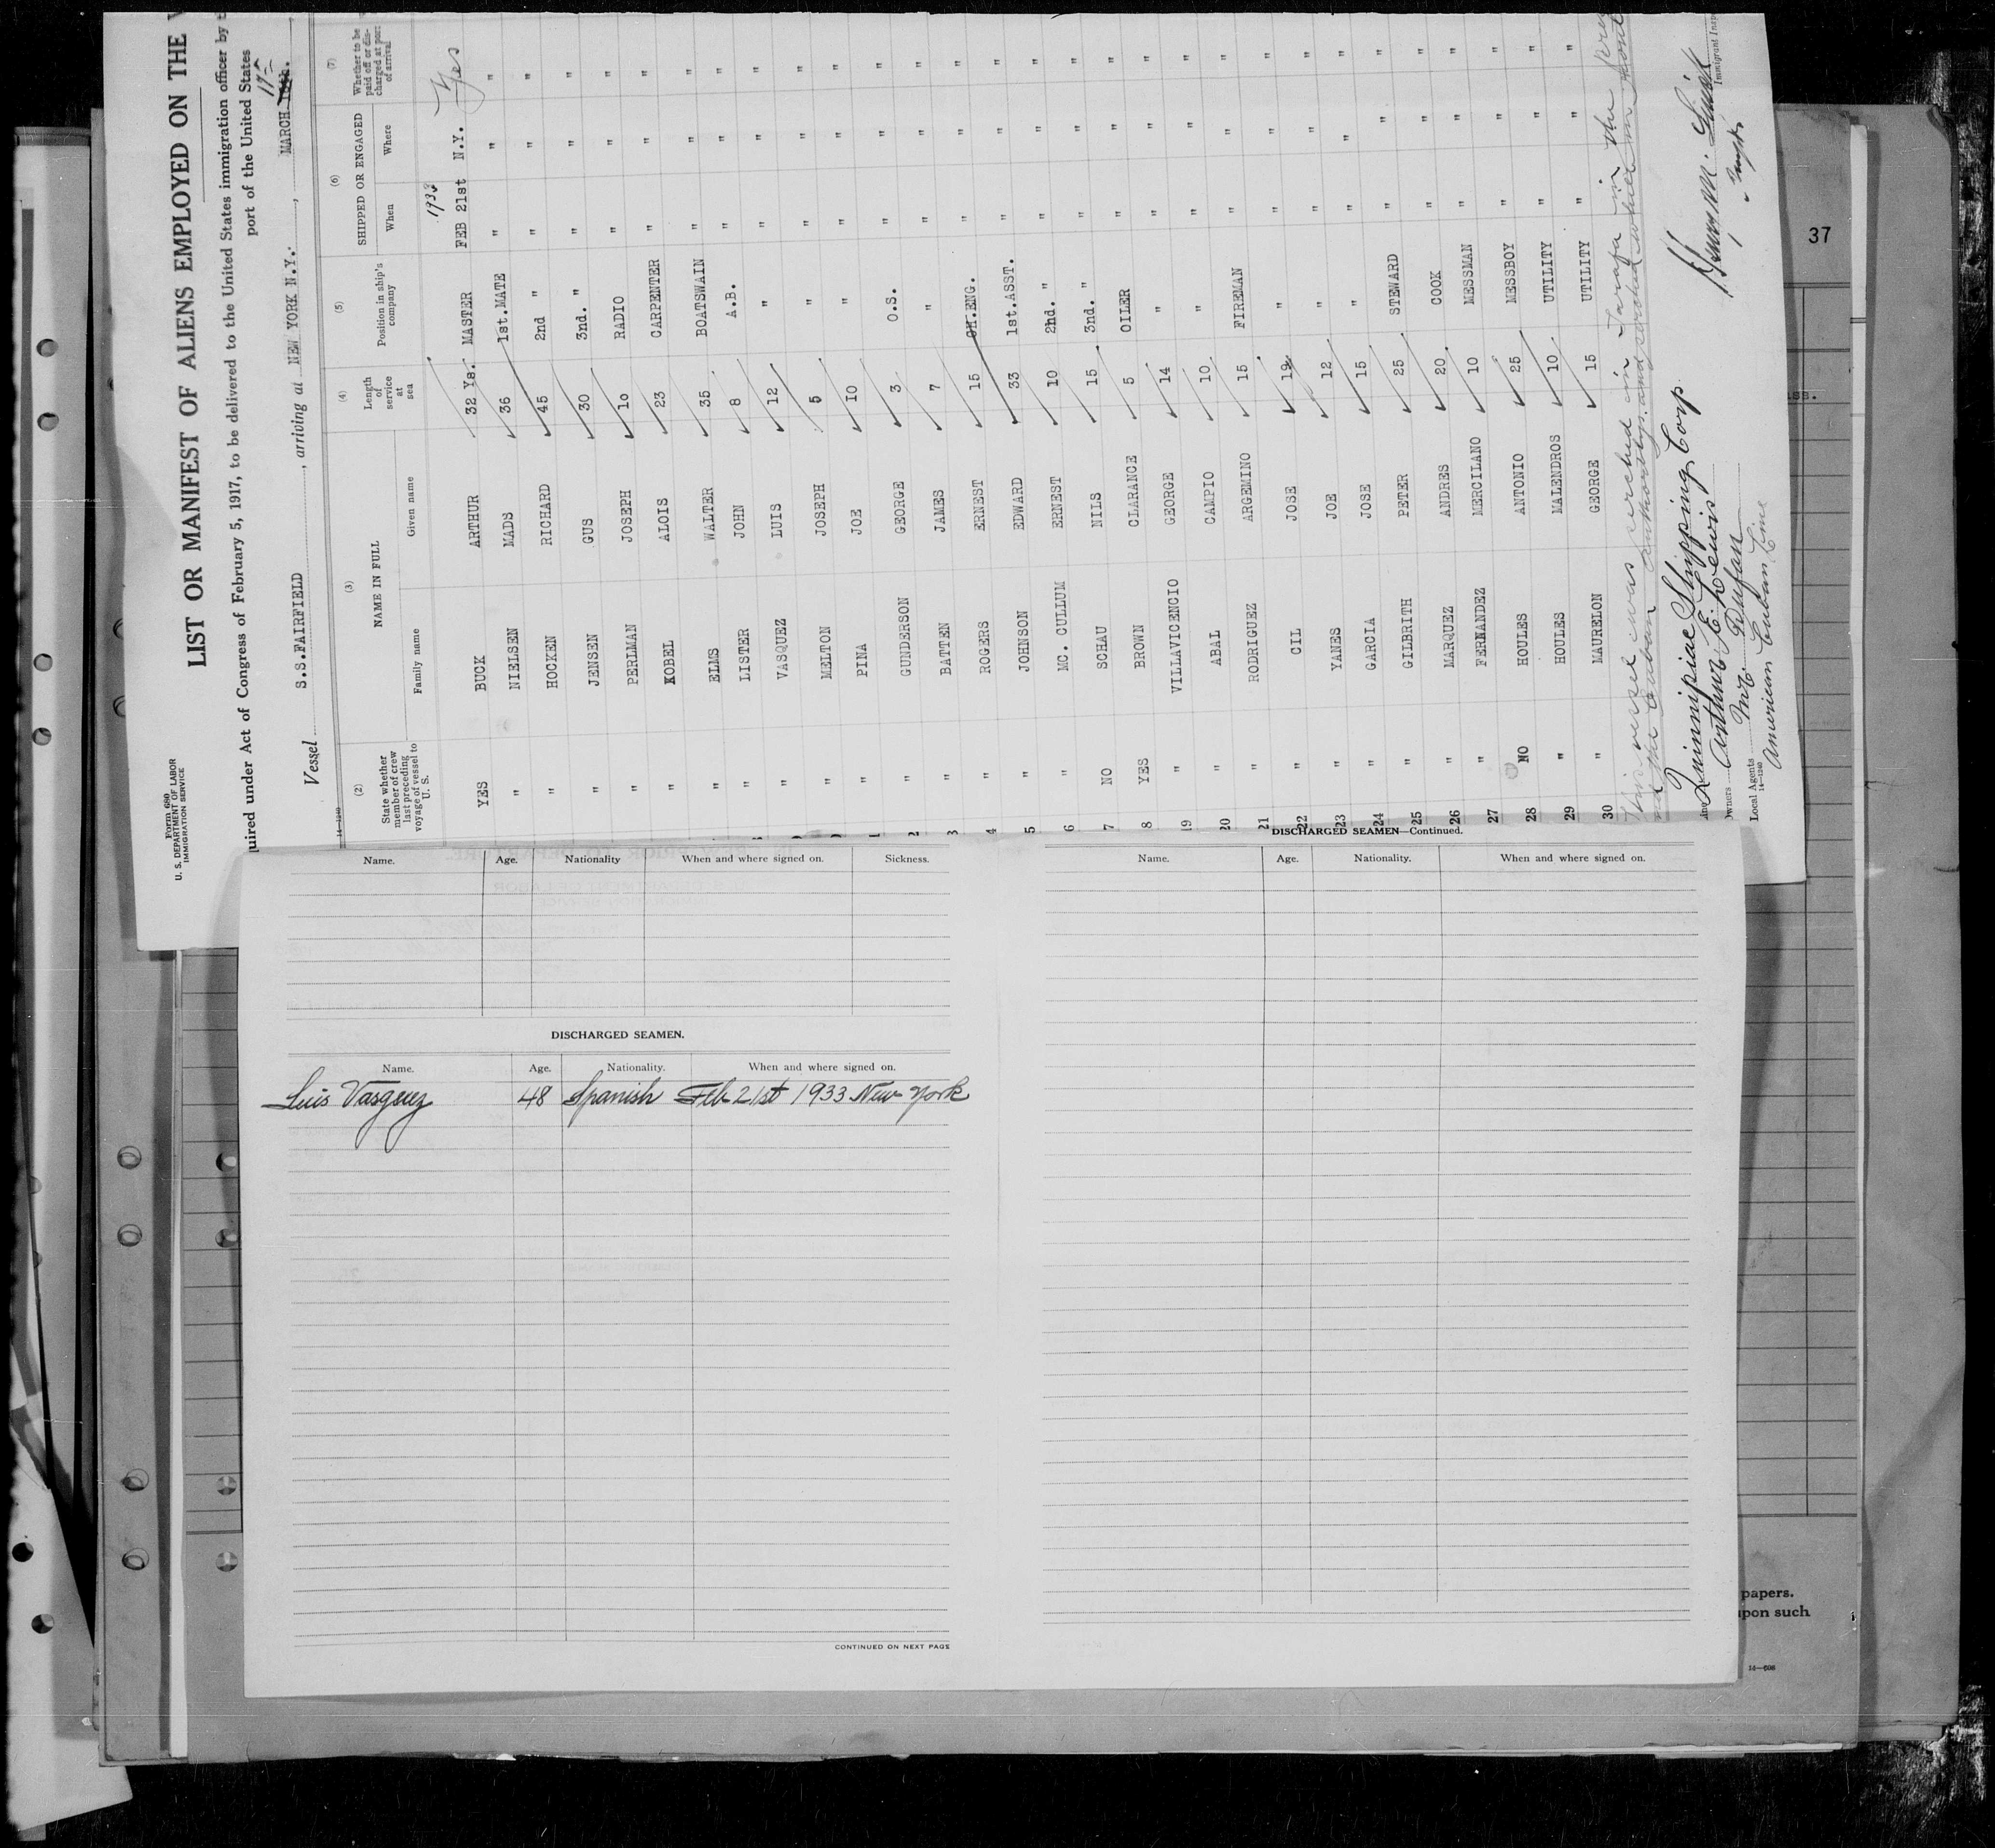 Form 680
U. S. DEPARTMENT OF LABOR
IMMIGRATION SERVICE
LIST OR MANIFEST OF ALIENS EMPLOYED ON THE
uired under Act of Congress of February 5, 1917, to be delivered to the United States immigration officer by
port of the United States
Vessel S.S.FAIRFIELD, arriving at NEW YORK N.Y., MARCH 17
14-1240
(2) (3) (4) (5) (6) (7)
State whether member of crew last preceding voyage of vessel to U. S. NAME IN FULL Family name Given name Length of service at sea Position in ship's company SHIPPED OR ENGAGED When Where Whether to be paid off or discharged at port of arrival
1933
YES BUCK ARTHUR 32 Ys. MASTER FEB 21st N.Y. Yes
" NIELSEN MADS 36 1st.MATE " " "
" HOCKEN RICHARD 45 2nd " " " "
" JENSEN GUS 30 3nd. " " " "
" PERLMAN JOSEPH 10 RADIO " " "
" KOBEL ALOIS 23 CARPENTER " " "
" ELMS WALTER 35 BOATSWAIN " " "
" LISTER JOHN 8 A.B. " " "
" VASQUEZ LUIS 12 " " " "
" MELTON JOSEPH 5 " " " "
1 " PINA JOE 10 " " " "
2 " GUNDERSON GEORGE 3 O.S. " " "
3 " BATTEN JAMES 7 " " " "
4 " ROGERS ERNEST 15 CH.ENG. " " "
5 " JOHNSON EDWARD 33 1st.ASST. " " "
6 " MC. CULLUM ERNEST 10 2nd. " " " "
7 NO SCHAU NILS 15 3nd. " " " "
8 YES BROWN CLARANCE 5 OILER " " "
19 " VILLAVICENCIO GEORGE 14 " " " "
20 " ABAL CAMPIO 10 " " " "
21 " RODRIGUEZ ARGEMINO 15 FIREMAN " " "
22 " CIL JOSE 19 " " " "
23 " YANES JOE 12 " " " "
24 " GARCIA JOSE 15 " " " "
25 " GILBRITH PETER 25 STEWARD " " "
26 " MARQUEZ ANDRES 20 COOK " " "
27 " FERNANDEZ MERCILANO 10 MESSMAN " " "
28 NO HOULES ANTONIO 25 MESSBOY " " "
29 " HOULES MALENDROS 10 UTILITY " " "
30 " MAURELON GEORGE 15 UTILITY " " "
This vessel was searched in Tarafa in the
Quinnipiac Shipping Corp
wners Arthur E. Lewis
Local Agents
14-1240
American Cuban Line
Immigrant Inspe
37
DISCHARGED SEAMEN—Continued.
Name. Age. Nationality When and where signed on. Sickness.
Name. Age. Nationality. When and where signed on.
DISCHARGED SEAMEN.
Name. Age. Nationality. When and where signed on.
Luis Vasquez 48 Spanish Feb 21st 1933 New York
CONTINUED ON NEXT PAGE
papers.
upon such